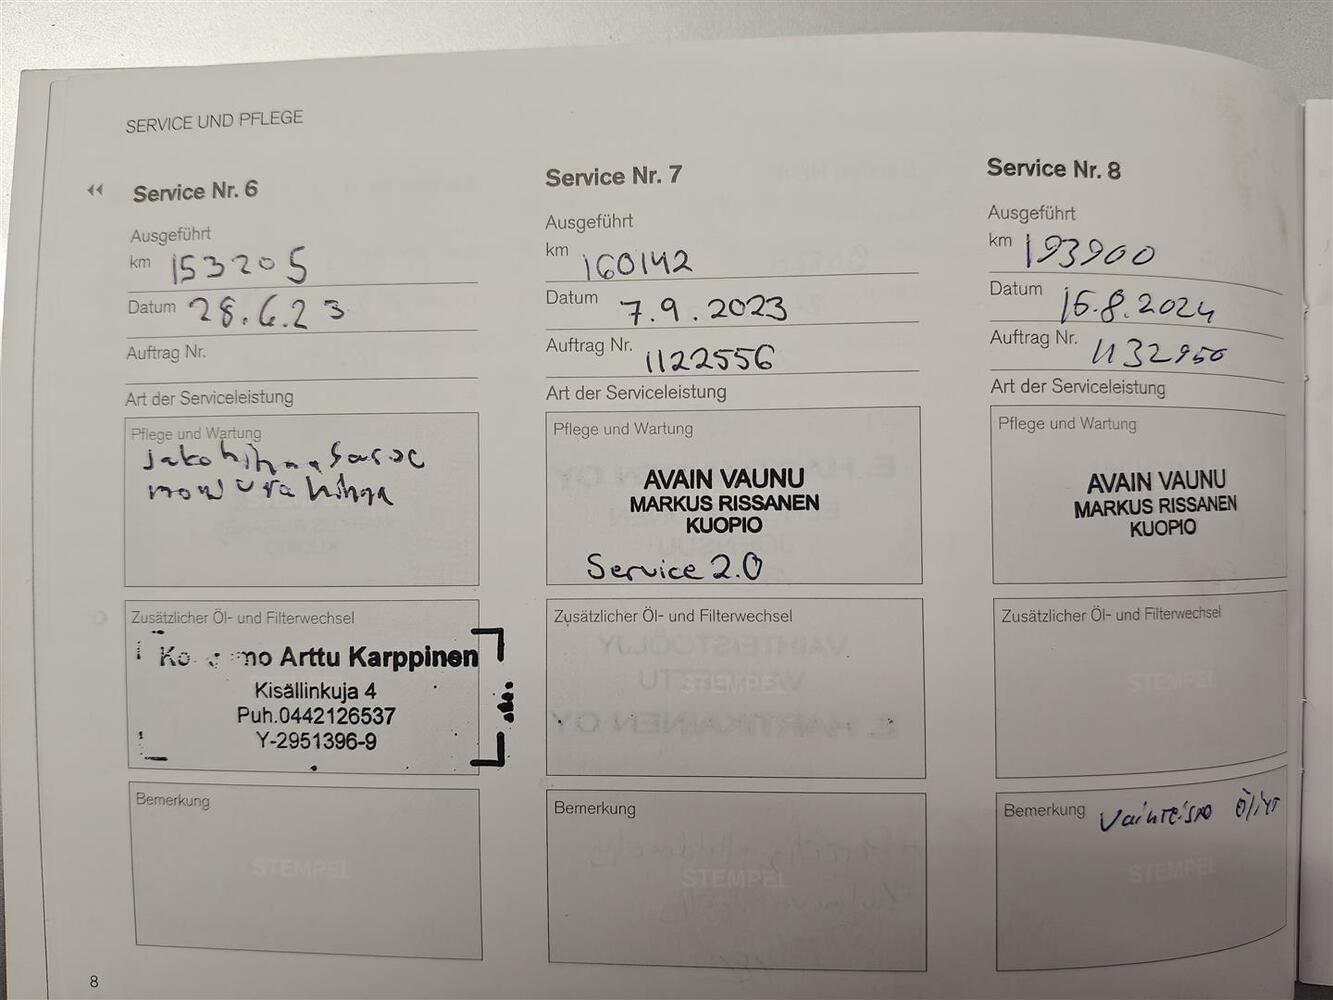 SERVICE UND PFLEGE
Service Nr. 6
Ausgeführt
km 153205
Datum 28.6.23
Auftrag Nr.
Art der Serviceleistung
Pflege und Wartung
jakohihna
hihna
Zusätzlicher Öl- und Filterwechsel
Arttu Karppinen
Kisällinkuja 4
Puh.0442126537
Y-2951396-9
Bemerkung
STEMPEL
8
Service Nr. 7
Ausgeführt
km 160142
Datum 7.9.2023
Auftrag Nr. 1122556
Art der Serviceleistung
Pflege und Wartung
AVAIN VAUNU
MARKUS RISSANEN
KUOPIO
Service 2.0
Zusätzlicher Öl- und Filterwechsel
STEMPEL
Bemerkung
STEMPEL
Service Nr. 8
Ausgeführt
km 193900
Datum 15.8.2024
Auftrag Nr. 1132950
Art der Serviceleistung
Pflege und Wartung
AVAIN VAUNU
MARKUS RISSANEN
KUOPIO
Zusätzlicher Öl- und Filterwechsel
STEMPEL
Bemerkung Vaihteisto Öljyt
STEMPEL